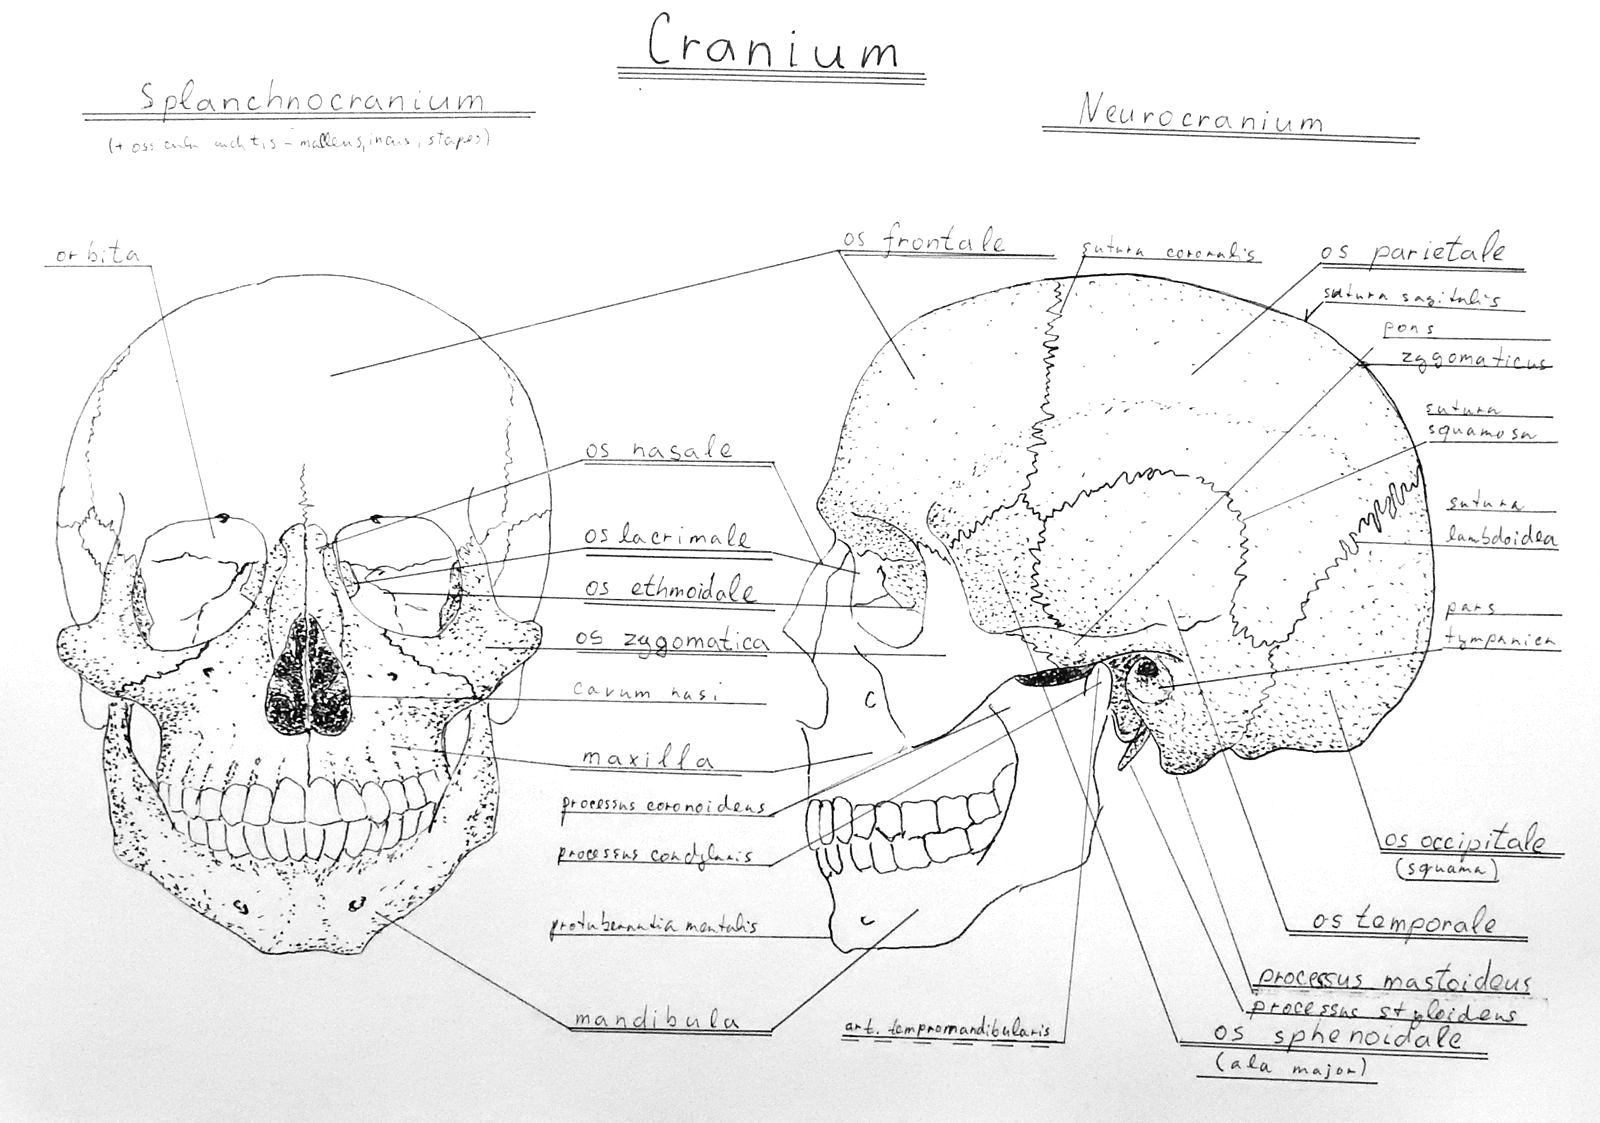 Cranium
Splanchnocranium
(+ auditis - malleus, incus, stapes)
Neurocranium
orbita
os frontale
sutura coronalis
os parietale
sutura sagitalis
pons
zygomaticus
sutura
squamosa
os nasale
os lacrimale
os ethmoidale
os zygomatica
cavum nasi
maxilla
processus coronoideus
processus condylaris
protuberantia mentalis
mandibula
sutura
lambdoidea
pars
tympanica
os occipitale
(squama)
os temporale
processus mastoideus
processus styloideus
os sphenoidale
(ala major)
art. tempromandibularis